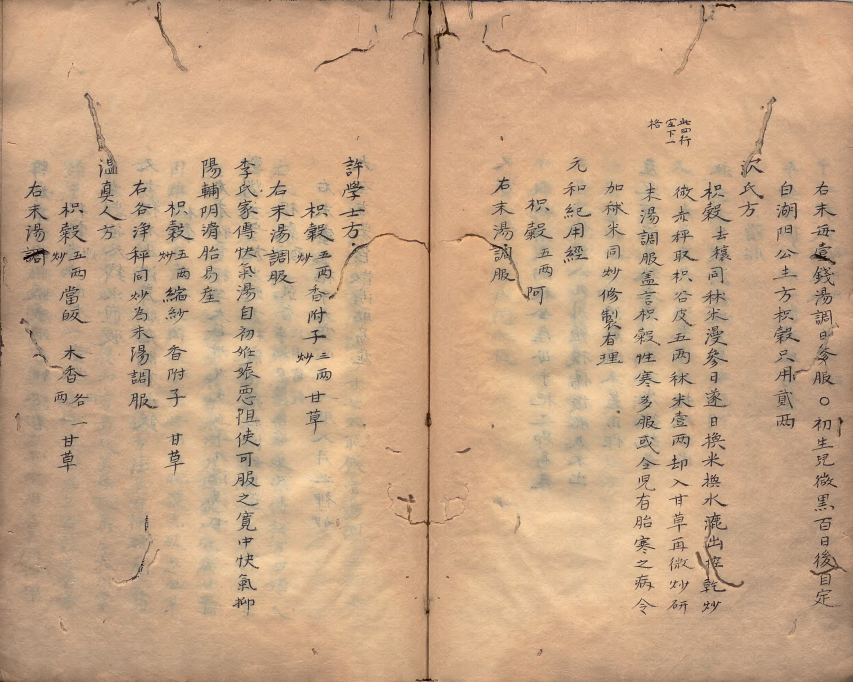 右末每壹錢湯調日叁服○初生兒微黑百日後自定
白湖陽公主方枳殼只用貳两
沉氏方
此四行
空下一
格
枳殼去穰同秫米漫叁日遂日換米換水漉出控乾炒
微赤秤取枳谷皮五两秫米壹两却入甘草再微炒研
末湯調服盖言枳殼性寒多服或令兒有胎寒之病今
加秫米同炒修製有理
元和紀用經
枳殼五两阿
右末湯調服
許學士方
枳殼五两炒香附子三两炒甘草
右末湯調服
李氏家傳快氣湯自初姙娠惡阻使可服之寛中快氣抑
陽輔阴滑胎易産
枳殼五两炒縮紗香附子甘草
右各淨秤同炒為末湯調服
温真人方
枳殼五两炒當皈木香各一两甘草
右末湯調